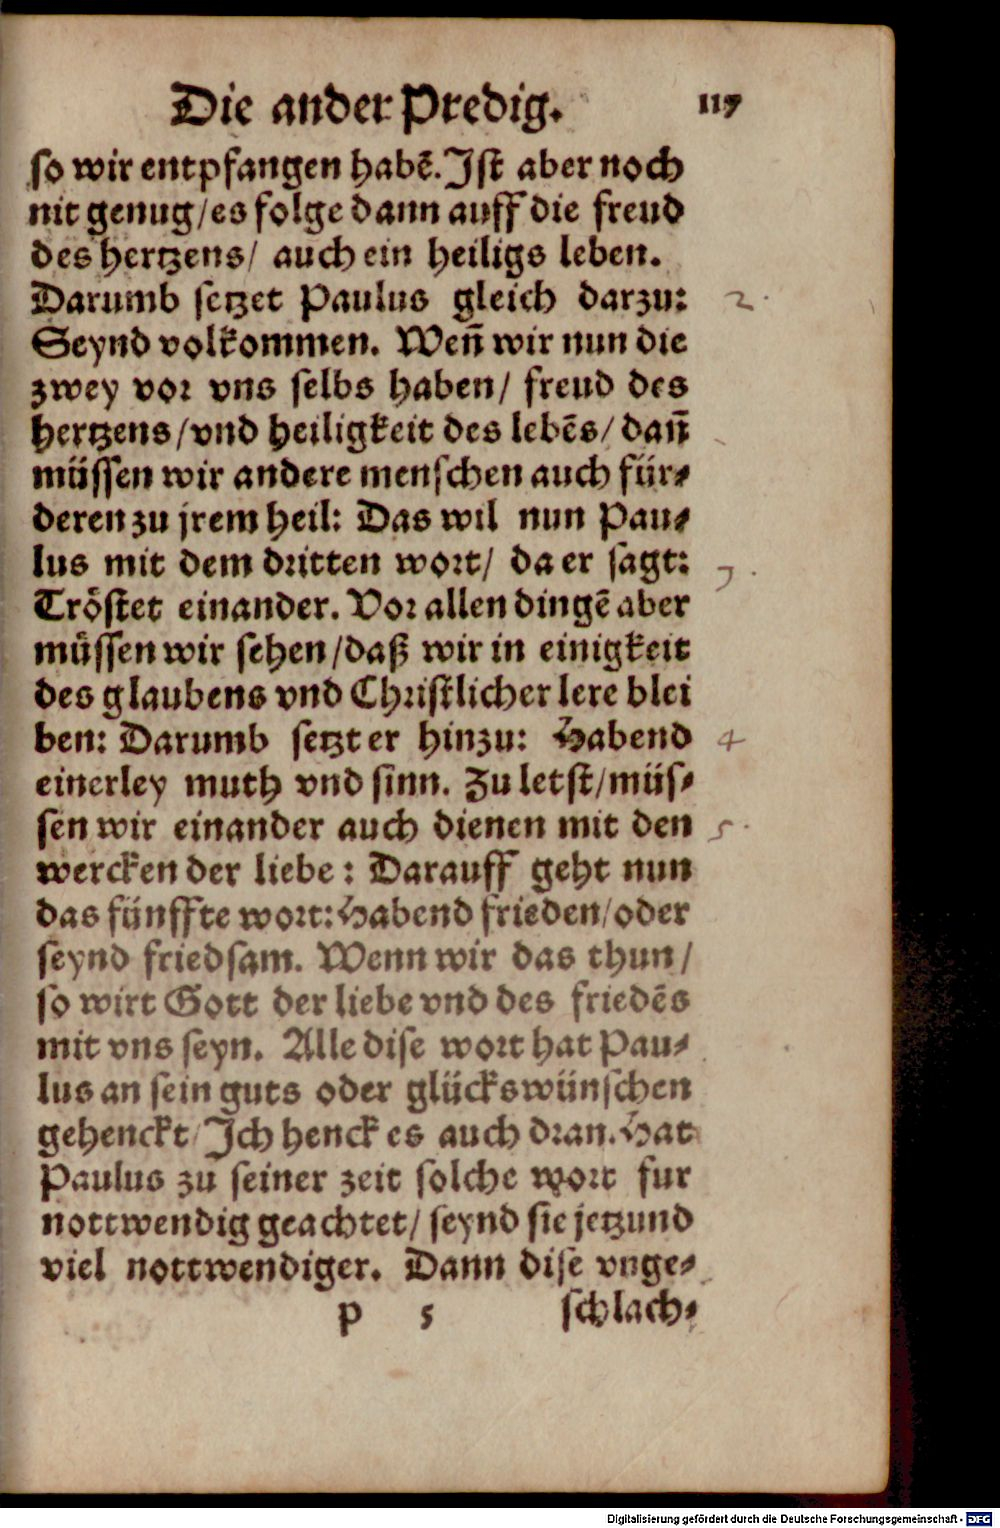 Die ander Predig. 117
so wir entpfangen habē. Ist aber noch
nit genug/es folge dann auff die freud
des hertzens/ auch ein heiligs leben.
Darumb setzet Paulus gleich darzu: 2.
Seynd volkommen. Wen̄ wir nun die
zwey vor vns selbs haben/ freud des
hertzens/vnd heiligkeit des lebēs/ dan̄
müssen wir andere menschen auch für⸗
deren zu jrem heil: Das wil nun Pau⸗
lus mit dem dritten wort/ da er sagt: 3.
Tröstet einander. Vor allen dingē aber
müssen wir sehen/daß wir in einigkeit
des glaubens vnd Christlicher lere blei
ben: Darumb setzt er hinzu: Habend 4
einerley muth vnd sinn. Zu letst/müs⸗
sen wir einander auch dienen mit den 5.
wercken der liebe: Darauff geht nun
das fünffte wort: Habend frieden/oder
seynd friedsam. Wenn wir das thun/
so wirt Gott der liebe vnd des friedēs
mit vns seyn. Alle dise wort hat Pau⸗
lus an sein guts oder glückswünschen
gehenckt/Ich henck es auch dran. Hat
Paulus zu seiner zeit solche wort fur
nottwendig geachtet/ seynd sie jetzund
viel nottwendiger. Dann dise vnge⸗
p 5 schlach⸗
Digitalisierung gefördert durch die Deutsche Forschungsgemeinschaft - DFG